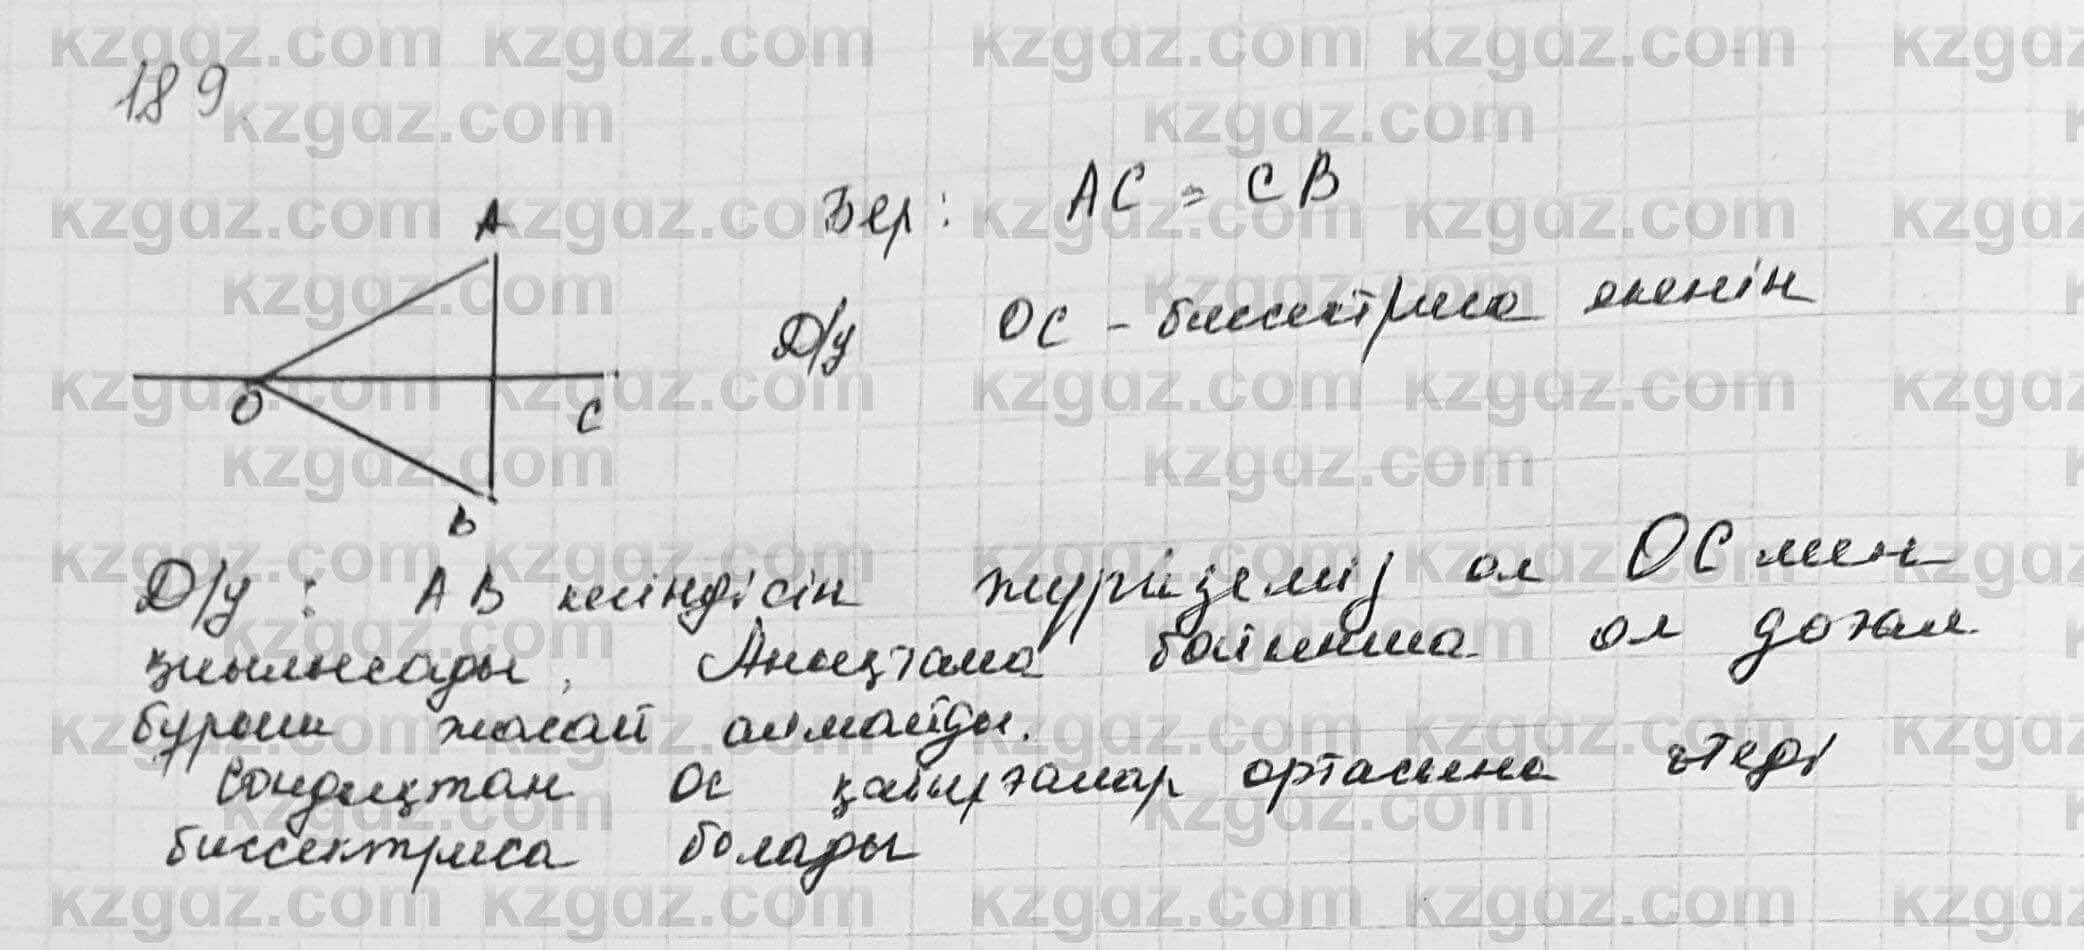 189
Бер: AC = CB
A
Д/у OC - биссектриса екенін
O
C
B
Д/у: AB кесіндісін жүргіземіз ол OC мен
қиылысады, Анықтама бойынша ол доғал
бұрыш жасай алмайды.
Сондықтан OC қабырғалар ортасына өтеді
биссектриса болады
kzgaz.com